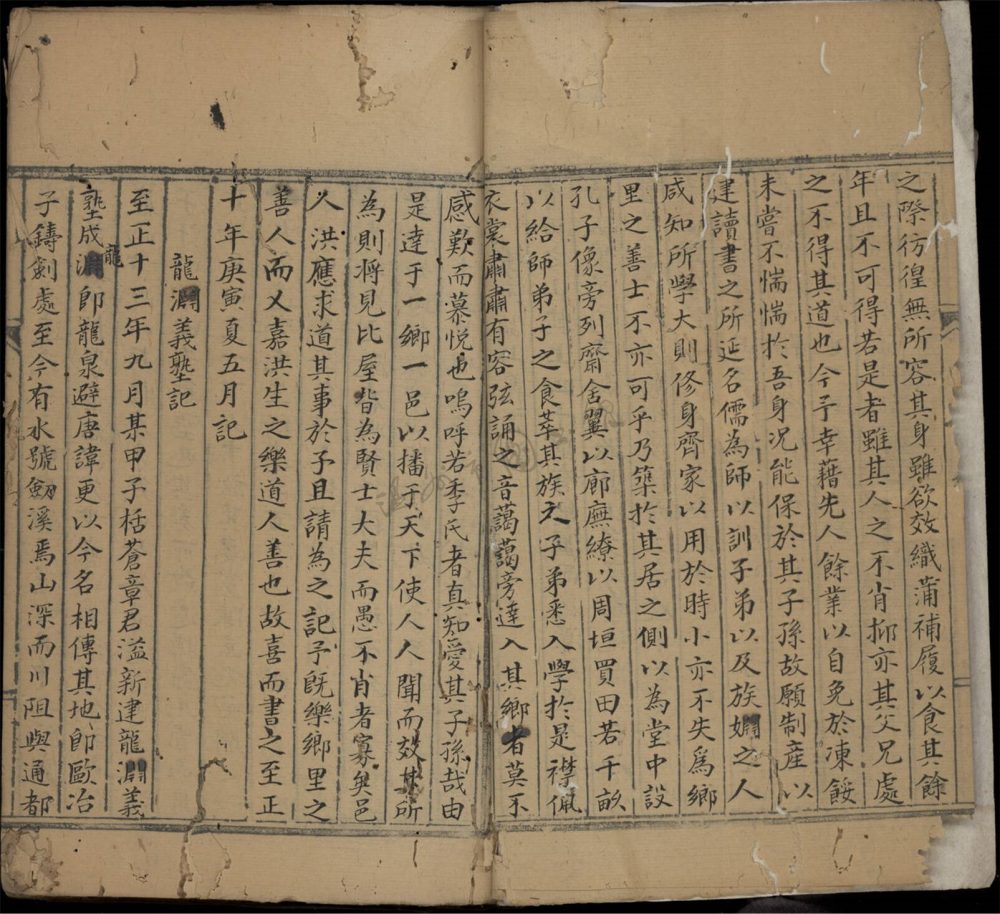 之際彷徨無所容其身雖欲效織蒲補履以食其餘
年且不可得若是者雖其人之不肖抑亦其父兄處
之不得其道也今予幸藉先人餘業以自免於凍餒
未嘗不惴惴於吾身況能保於其子孫故願制產以
建讀書之所延名儒為師以訓子弟以及族姻之人
咸知所學大則修身齊家以用於時小亦不失為鄉
里之善士不亦可乎乃築於其居之側以為堂中設
孔子像旁列齋舍翼以廊廡繚以周垣買田若干畝
以給師弟子之食萃其族之子弟悉入學於是襟佩
衣裳肅肅有容弦誦之音藹藹旁達入其鄉者莫不
感歎而慕悅也嗚呼若季氏者真知愛其子孫哉由
是達于一鄉一邑以播于天下使人人聞而效其所
為則將見比屋皆為賢士大夫而愚不肖者寡矣邑
人洪應求道其事於予且請為之記予既樂鄉里之
善人而又嘉洪生之樂道人善也故喜而書之至正
十年庚寅夏五月記
龍淵義塾記
至正十三年九月某甲子栝蒼章君溢新建龍淵義
塾成龍淵即龍泉避唐諱更以今名相傳其地即歐冶
子鑄劍處至今有水號劒溪焉山深而川阻與通都